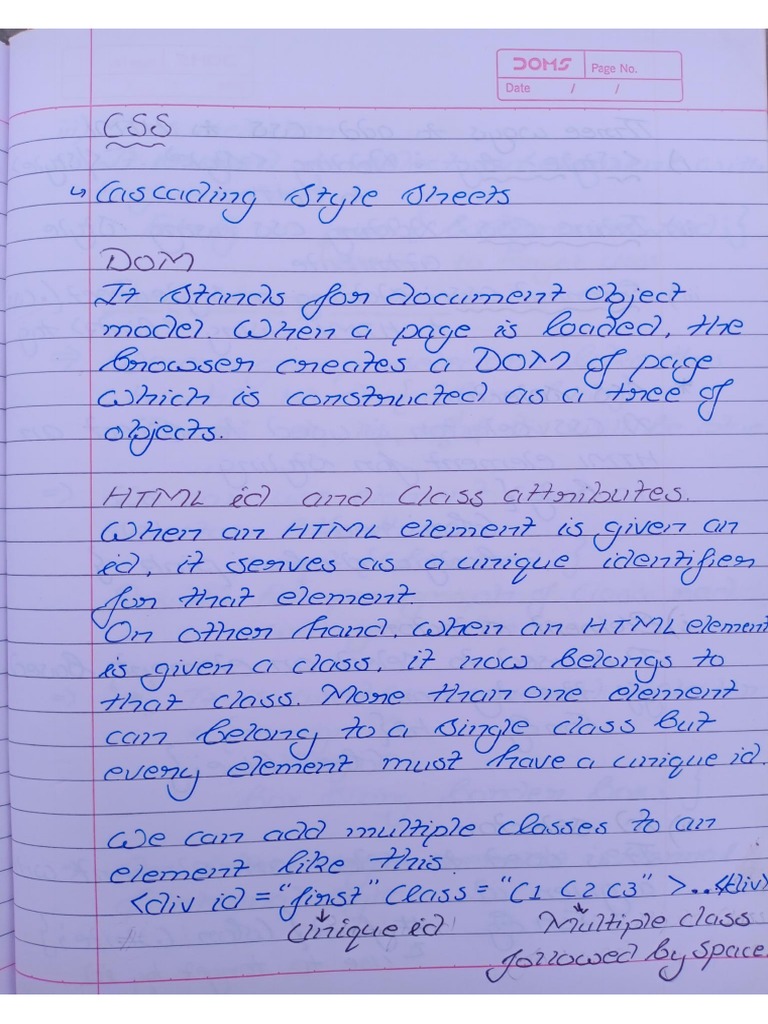 DOMS Page No.
Date / /
CSS
↳ Cascading Style Sheets
DOM
It stands for document object
model. When a page is loaded, the
browser creates a DOM of page
which is constructed as a tree of
objects.
HTML id and Class attributes.
When an HTML element is given an
id, it serves as a unique identifier
for that element.
On other hand, when an HTML element
is given a class, it now belongs to
that class. More than one element
can belong to a single class but
every element must have a unique id.
We can add multiple classes to an
element like this
<div id = "first" Class = "C1 C2 C3" >..</div>
Unique id Multiple class
followed by space.